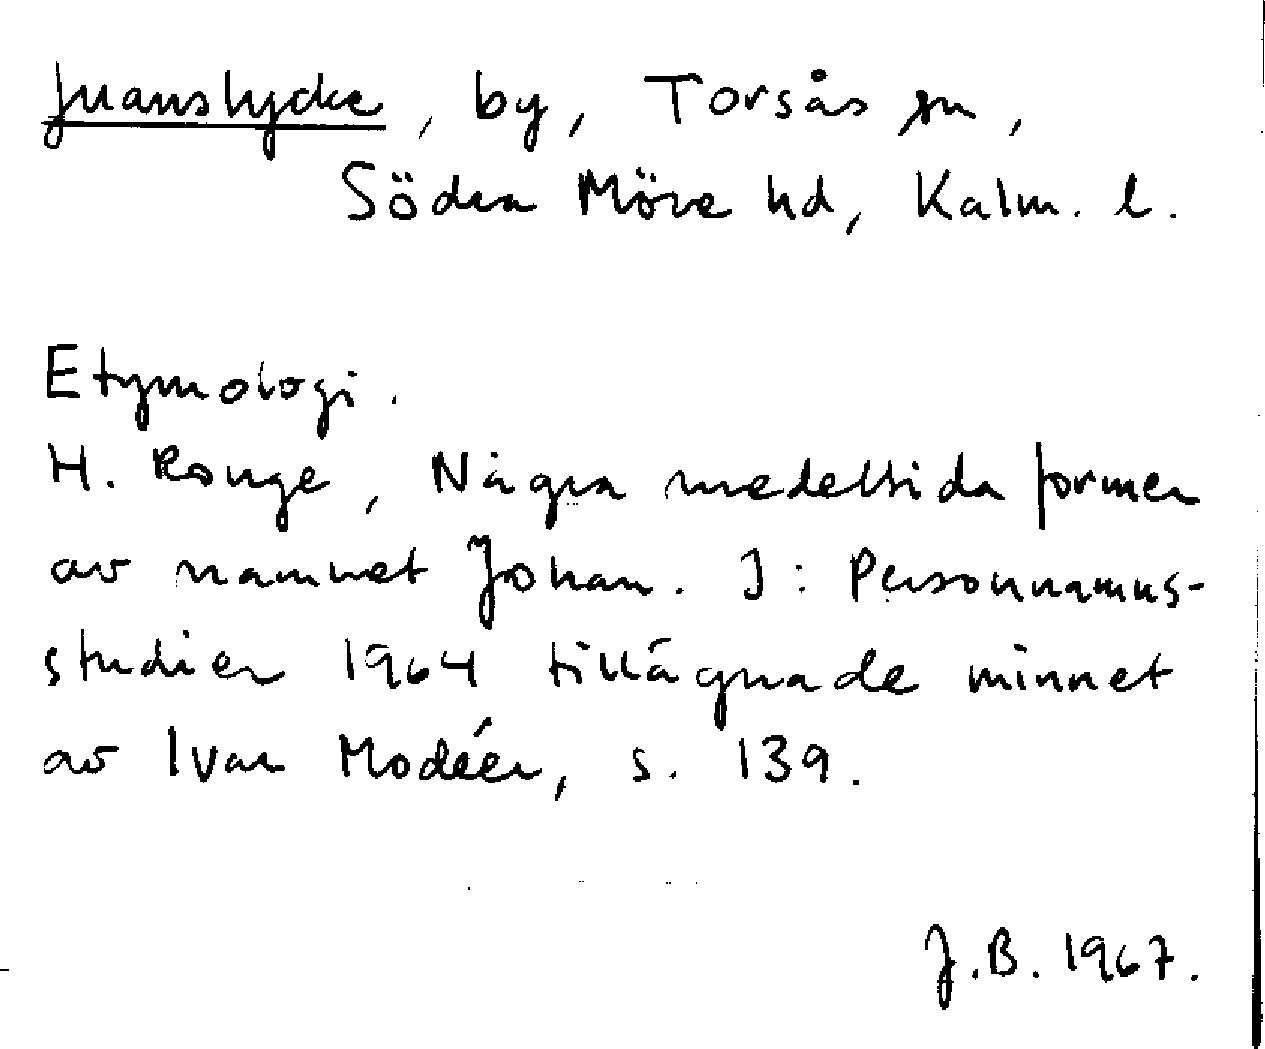 Juanslycke, by, Torsås sn,
Södra Möre hd, Kalm. l.
Etymologi.
H. Ronge, Några medeltida former
av namnet Johan. I: Personnamns-
studier 1964 tillägnade minnet
av Ivar Modéer, s. 139.
J.B. 1967.